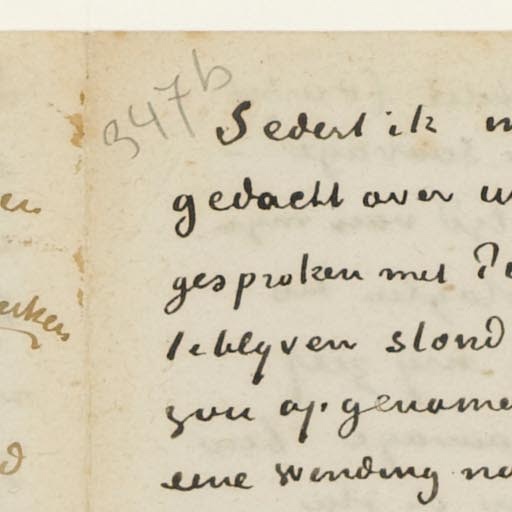 347b
Sedert ik
en
gedacht over
gesproken met
te blyven stond
zou opgenome
d
eene wending na